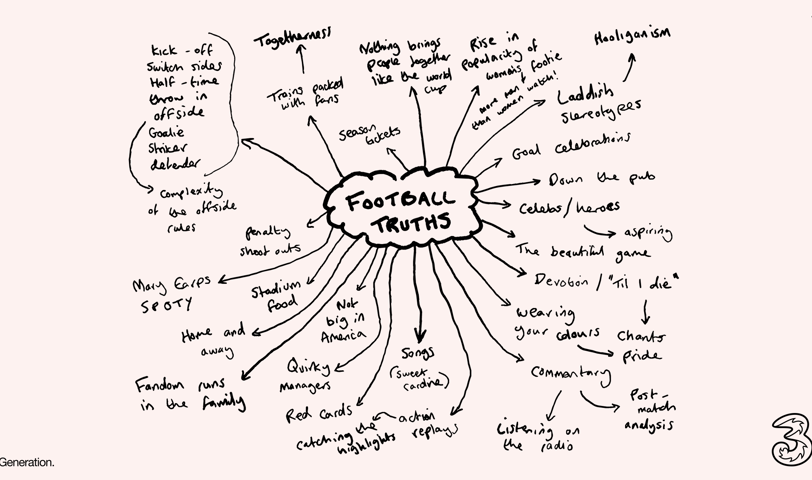 kick-off
Switch sides
Half-time
throw in
offside
Goalie
Striker
defender
complexity
of the offside
rules
Togetherness
Trains packed
with fans
Season
tickets
Nothing brings
people together
like the world
cup
Rise in
popularity of
womens footie
more men
than women watch!
Hooliganism
Laddish
stereotypes
Goal celebrations
Down the pub
Celebs/heroes
aspiring
The beautiful game
Devotion / "Til I die"
Chants
Pride
wearing
your colours
Commentary
Post-
match
analysis
Listening on
the radio
FOOTBALL
TRUTHS
penalty
shoot outs
Mary Earps
SPOTY
Stadium
food
Home and
away
Not
big in
America
Fandom runs
in the family
Quirky
managers
Songs
(sweet
caroline)
Red Cards
action
replays
catching the
highlights
Generation.
3